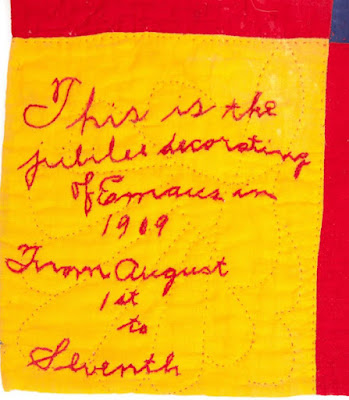 This is the
jubilee decorating
of Emaus in
1909
From August
1st
to
Seventh